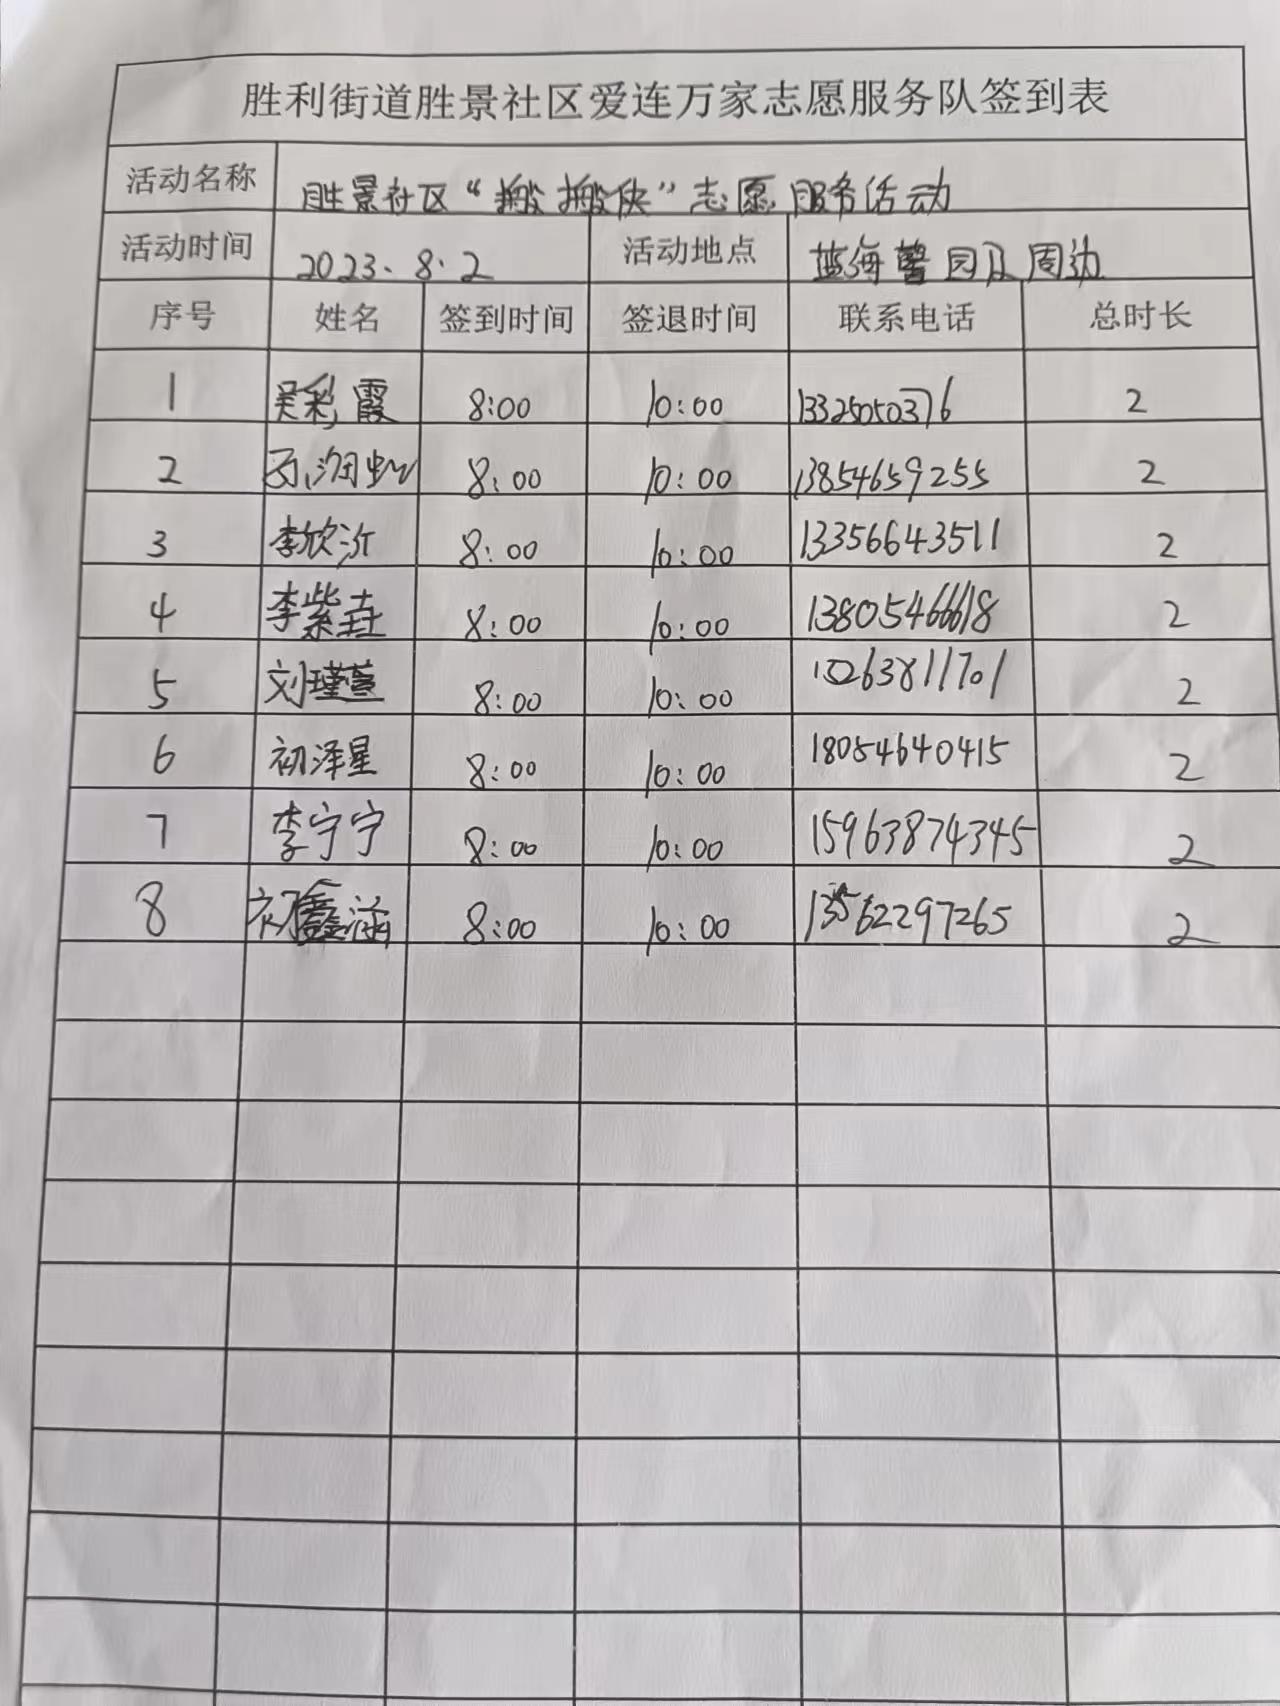 胜利街道胜景社区爱连万家志愿服务队签到表
活动名称 胜景社区“搬搬侠”志愿服务活动
活动时间 2023.8.2 活动地点 蓝海馨园及周边
序号 姓名 签到时间 签退时间 联系电话 总时长
1 吴彩霞 8:00 10:00 13325050376 2
2 8:00 10:00 13854659255 2
3 李欣沂 8:00 10:00 13356643511 2
4 李紫垚 8:00 10:00 13805466618 2
5 刘瑾萱 8:00 10:00 2
6 初泽星 8:00 10:00 18054640415 2
7 李宁宁 8:00 10:00 15963874345 2
8 初鑫涵 8:00 10:00 13562297265 2